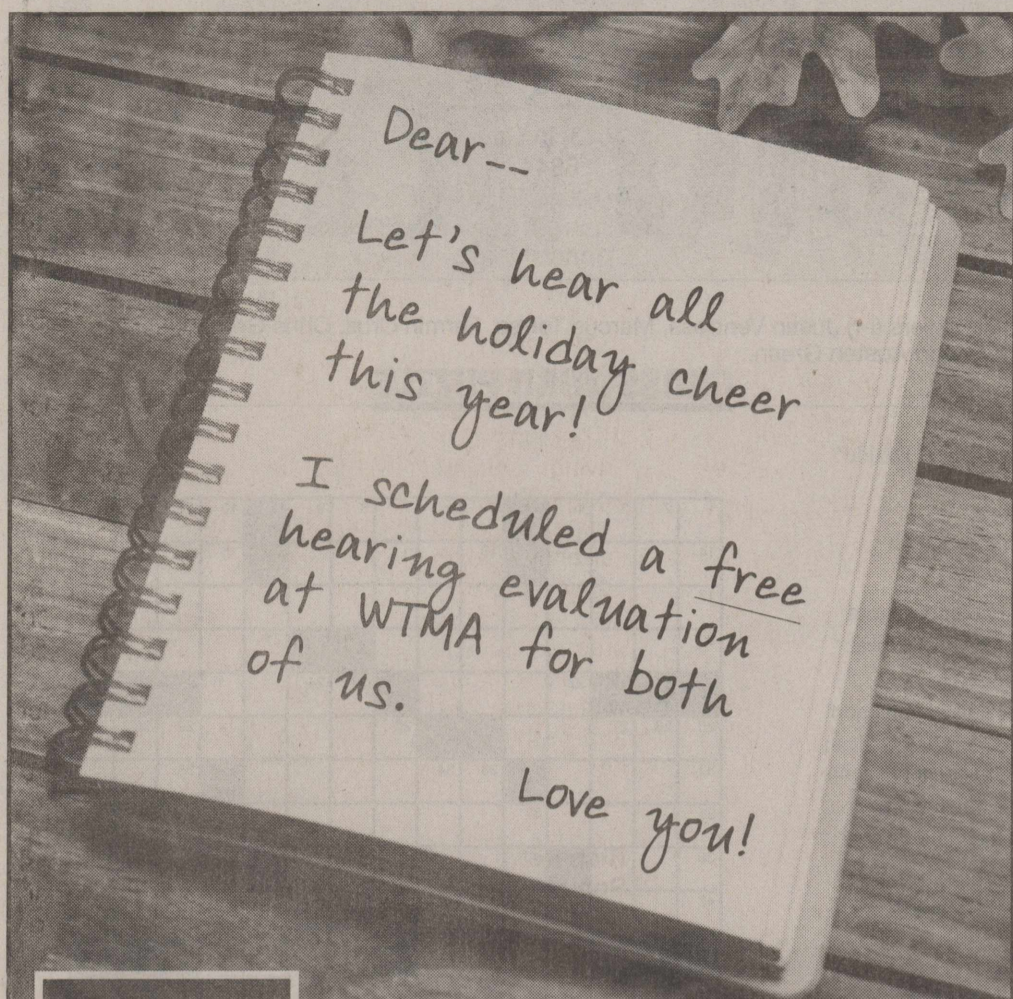 Dear--
Let's hear all
the holiday cheer
this year!
I scheduled a free
hearing evaluation
at WTMA for both
of us.
Love you!